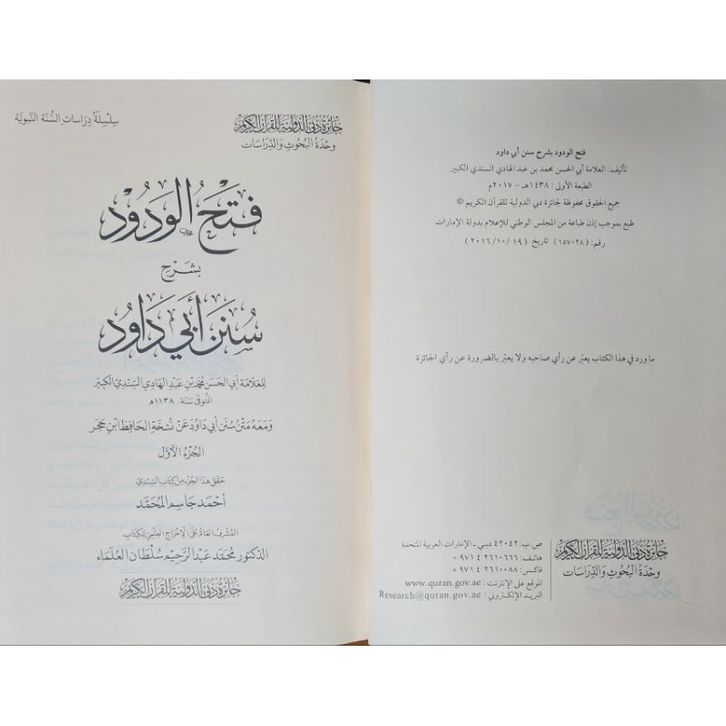 جائزة دبي الدولية للقرآن الكريم
وحدة البحوث والدراسات
سلسلة دراسات السنة النبوية
فتح الودود
بشرح
سنن أبي داود
للعلامة أبي الحسن محمد بن عبد الهادي السندي الكبير
المتوفى سنة ١١٣٨هـ
ومعه متن سنن أبي داود عن نسخة الحافظ ابن حجر
الجزء الأول
حقق هذا الجزء من كتاب السندي
أحمد جاسم المحمد
المشرف العام على الإخراج العلمي للكتاب
الدكتور محمد عبد الرحيم سلطان العلماء
جائزة دبي الدولية للقرآن الكريم
فتح الودود بشرح سنن أبي داود
تأليف: العلامة أبي الحسن محمد بن عبد الهادي السندي الكبير
الطبعة الأولى: ١٤٣٨هـ - ٢٠١٧م
جميع الحقوق محفوظة لجائزة دبي الدولية للقرآن الكريم ©
طبع بموجب إذن طباعة من المجلس الوطني للإعلام بدولة الإمارات
رقم: (١٥٧٠٢٨) تاريخ (١٩/ ١٠/ ٢٠١٦)
ما ورد في هذا الكتاب يعبّر عن رأي صاحبه ولا يعبّر بالضرورة عن رأي الجائزة
جائزة دبي الدولية للقرآن الكريم
وحدة البحوث والدراسات
ص.ب: ٤٢٠٤٢ دبي - الإمارات العربية المتحدة
هاتف: ٢٦١٠٦٦٦ ٤ ٩٧١ +
فاكس: ٢٦١٠٠٨٨ ٤ ٩٧١ +
الموقع على الإنترنت: www.quran.gov.ae
البريد الإلكتروني: Research@quran.gov.ae